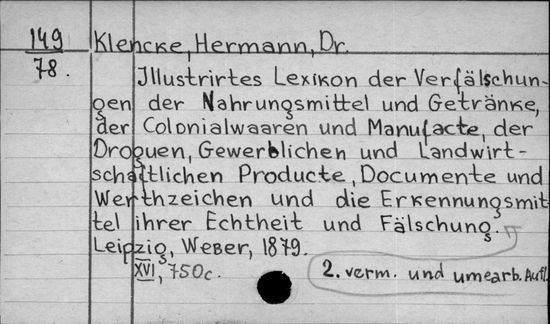 149
78.
Klencke, Hermann, Dr.
Illustrirtes Lexikon der Verfälschun-
gen der Nahrungsmittel und Getränke,
der Colonialwaaren und Manufacte, der
Droguen, Gewerblichen und Landwirt-
schaftlichen Producte, Documente und
Werthzeichen und die Erkennungsmit-
tel ihrer Echtheit und Fälschung.
Leipzig, Weber, 1879.
XVI, 750c.
2. verm. und umearb. Aufl.